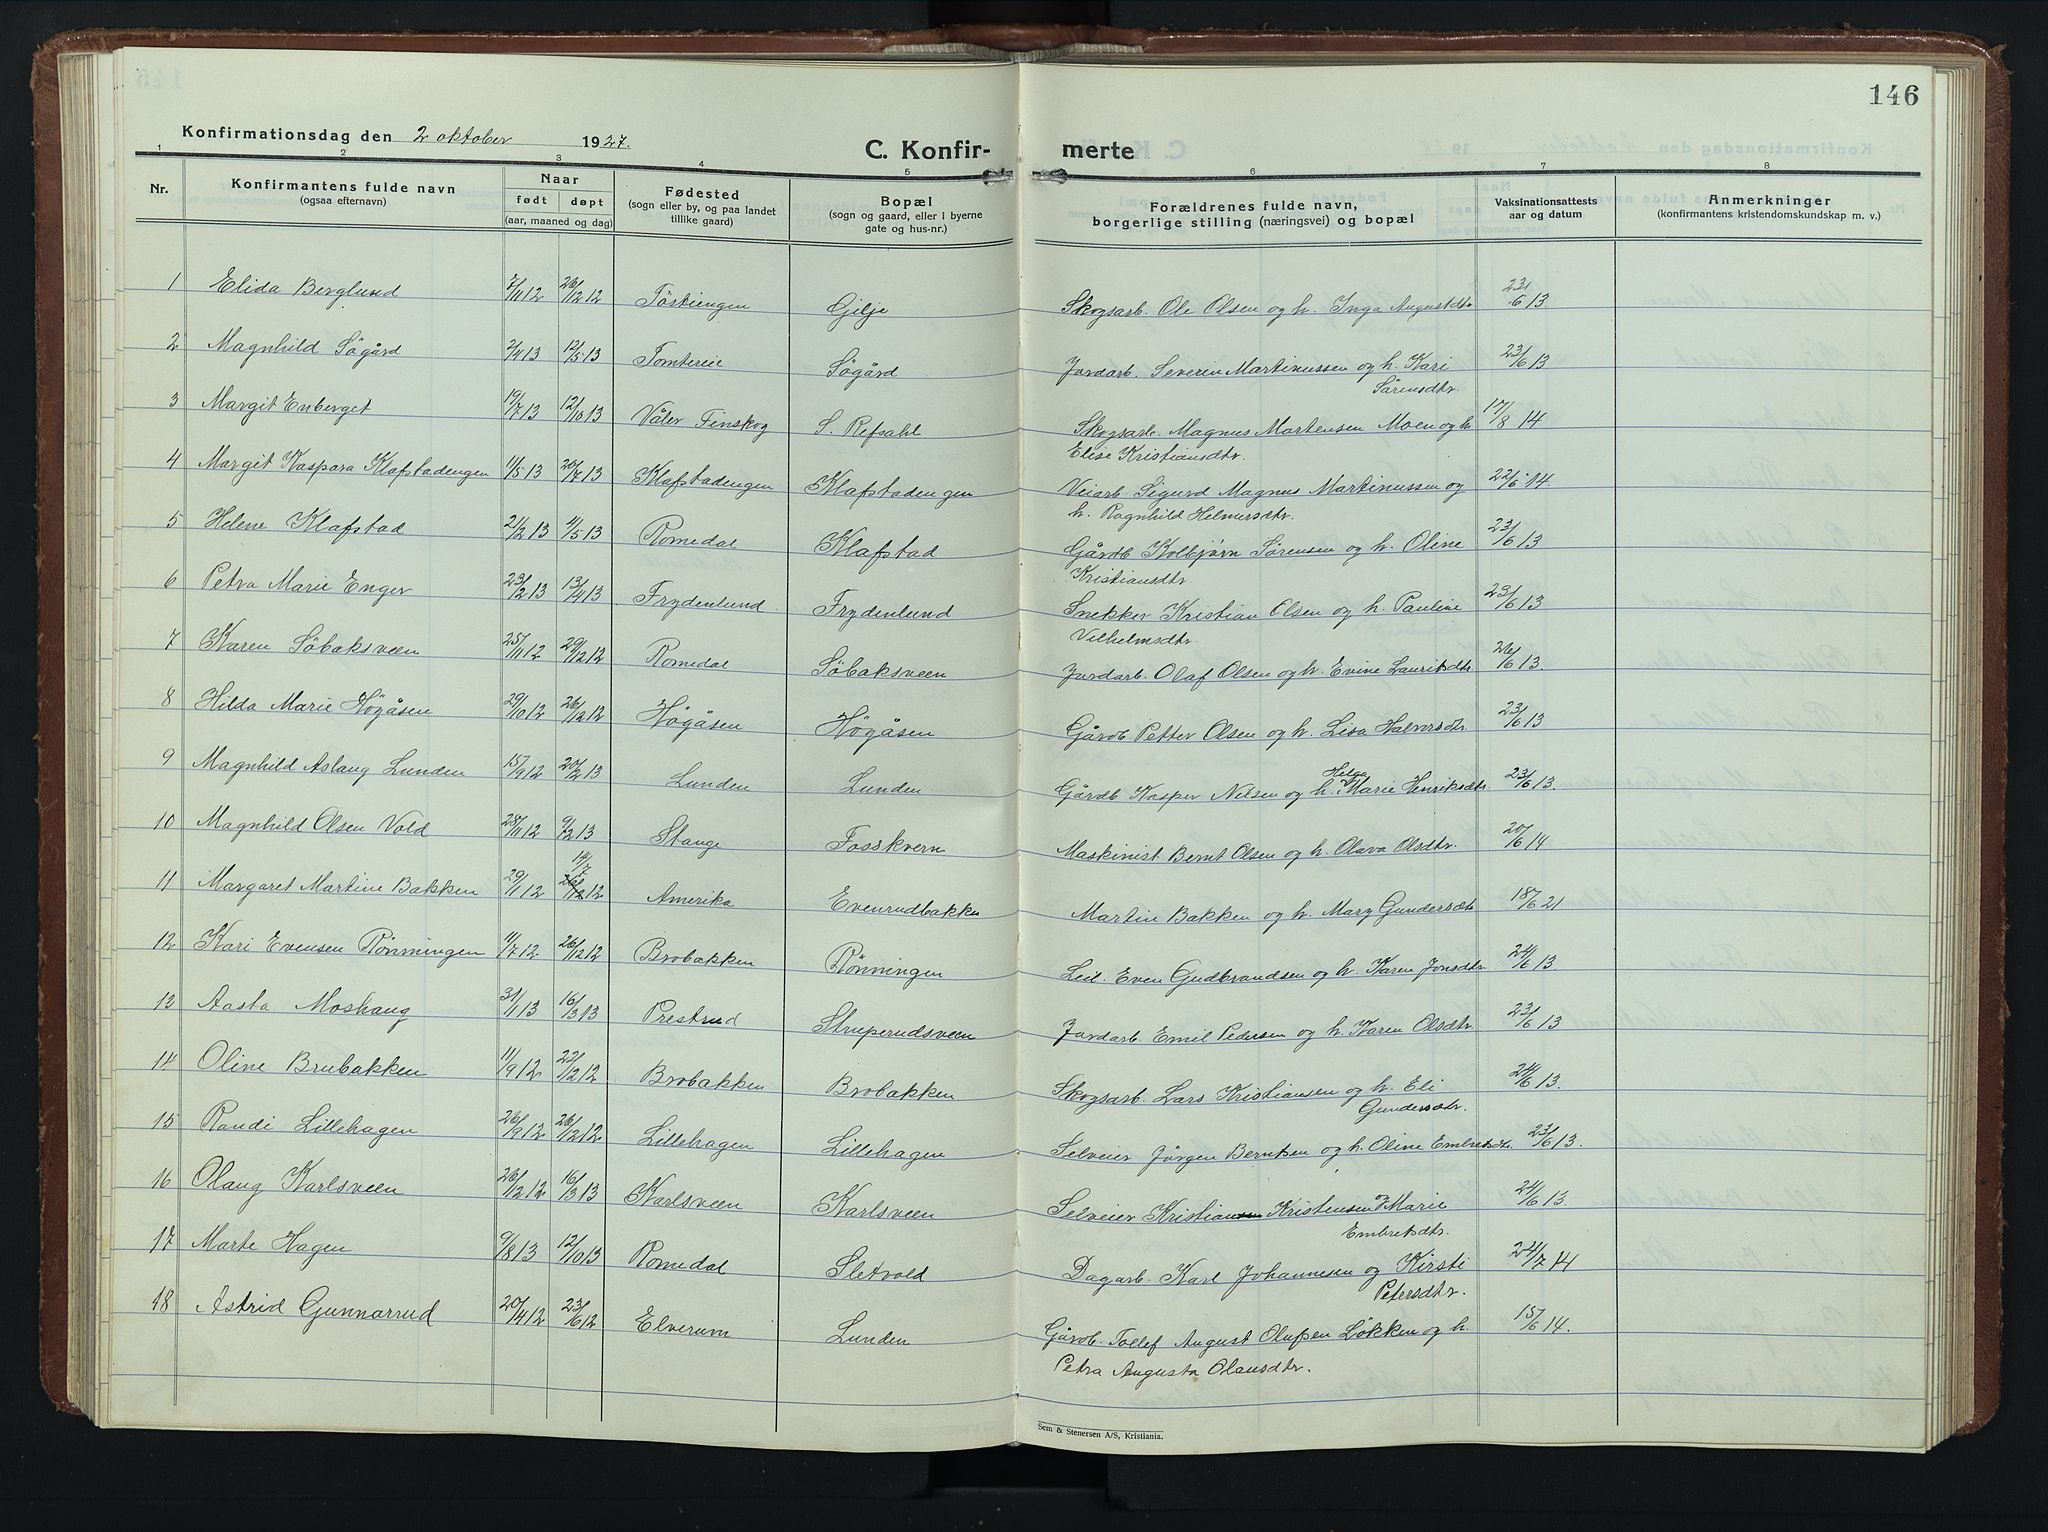 146
Konfirmationsdag den 2 oktober 1927.
C. Konfirmerte
1 2 3 4 5 6 7 8
Nr.
Konfirmantens fulde navn
(ogsaa efternavn)
Naar
født døpt
(aar, maaned og dag)
Fødested
(sogn eller by, og paa landet
tillike gaard)
Bopæl
(sogn og gaard, eller i byerne
gate og hus-nr.)
Forældrenes fulde navn,
borgerlige stilling (næringsvei) og bopæl
Vaksinationsattests
aar og datum
Anmerkninger
(konfirmantens kristendomskundskap m. v.)
1 Elida Berglund 7/11 12 26/12 12 Töstiengen Gilje Skogsarb. Ole Olsen og h. Inga Augustdtr 23/6 13
2 Magnhild Sögård 2/4 13 12/5 13 Tomtereie Sögård Jordarb. Severen Martinussen og h. Kari
Sörensdtr.
23/6 13
3 Margit Enberget 19/7 13 12/10 13 Våler Finskog S. Refsahl Skogsarb. Magnus Martensen Moen og h
Elise Kristiansdtr.
17/8 14
4 Margit Kaspara Klafstadengen 11/5 13 20/7 13 Klafstadengen Klafstadengen Veiarb. Sigurd Magnus Martinussen og
h. Ragnhild Helmersdtr.
22/6 14
5 Helene Klafstad 21/2 13 4/5 13 Romedal Klafstad Gårdb Kolbjørn Sørensen og h. Oline
Kristiansdtr
23/6 13
6 Petra Marie Enger 23/2 13 13/4 13 Frydenlund Frydenlund Snekker Kristian Olsen og h. Pauline
Vilhelmsdtr.
23/6 13
7 Karen Söbaksveen 25/11 12 29/12 12 Romedal Söbaksveen Jordarb. Olaf Olsen og h. Evine Lauritsdtr. 26/6 13.
8 Hilda Marie Högåsen 29/10 12 26/12 12 Högåsen Högåsen Gårdb. Petter Olsen og h. Lisa Halvorsdtr. 23/6 13
9 Magnhild Aslaug Lunden 15/9 12 20/2 13 Lunden Lunden Gårdb Kasper Nilsen og h. Helga Marie Henriksdtr. 23/6 13.
10 Magnhild Olsen Vold 28/11 12 9/2 13 Stange Fosskvern Maskinist Bernt Olsen og h. Olava Olsdtr. 20/6 14
11 Margaret Martine Bakken 29/1 12 14/7 12 Amerika Evenrudbakken Martin Bakken og h. Mary Gundersdtr 18/6 21
12 Kari Evensen Rönningen 11/7 12 26/12 12 Brobakken Rönningen Leil. Even Gudbrandsen og h. Karen Jonsdtr 24/6 13.
13 Aasta Moshaug 31/1 13 16/3 13 Prestrud Struperudsveen Jordarb. Emil Pedersen og h. Karen Olsdtr 23/6 13
14 Oline Brubakken 11/9 12 22/12 12 Brobakken Brobakken Skogsarb. Lars Kristiansen og h. Eli
Gundersdtr.
24/6 13.
15 Randi Lillehagen 26/9 12 26/12 12 Lillehagen Lillehagen Selveier Jörgen Berntsen og h. Oline Embretsdtr. 23/6 13.
16 Olaug Karlsveen 26/12 12 16/3 13 Karlsveen Karlsveen Selveier Kristiansen Kristensen og Marie
Embretsdtr.
24/6 13.
17 Marte Hagen 9/8 13 12/10 13 Romedal Sletvold Dagarb. Karl Johannesen og Kirsti
Petersdtr.
24/7 14
18 Astrid Gunnarrud 20/4 12 23/6 12 Elverum Lunden Gårdb. Tollef August Olufsen Løkken og h.
Petra Augusta Olausdtr.
15/6 14.
Sem & Stenersen A/S, Kristiania.